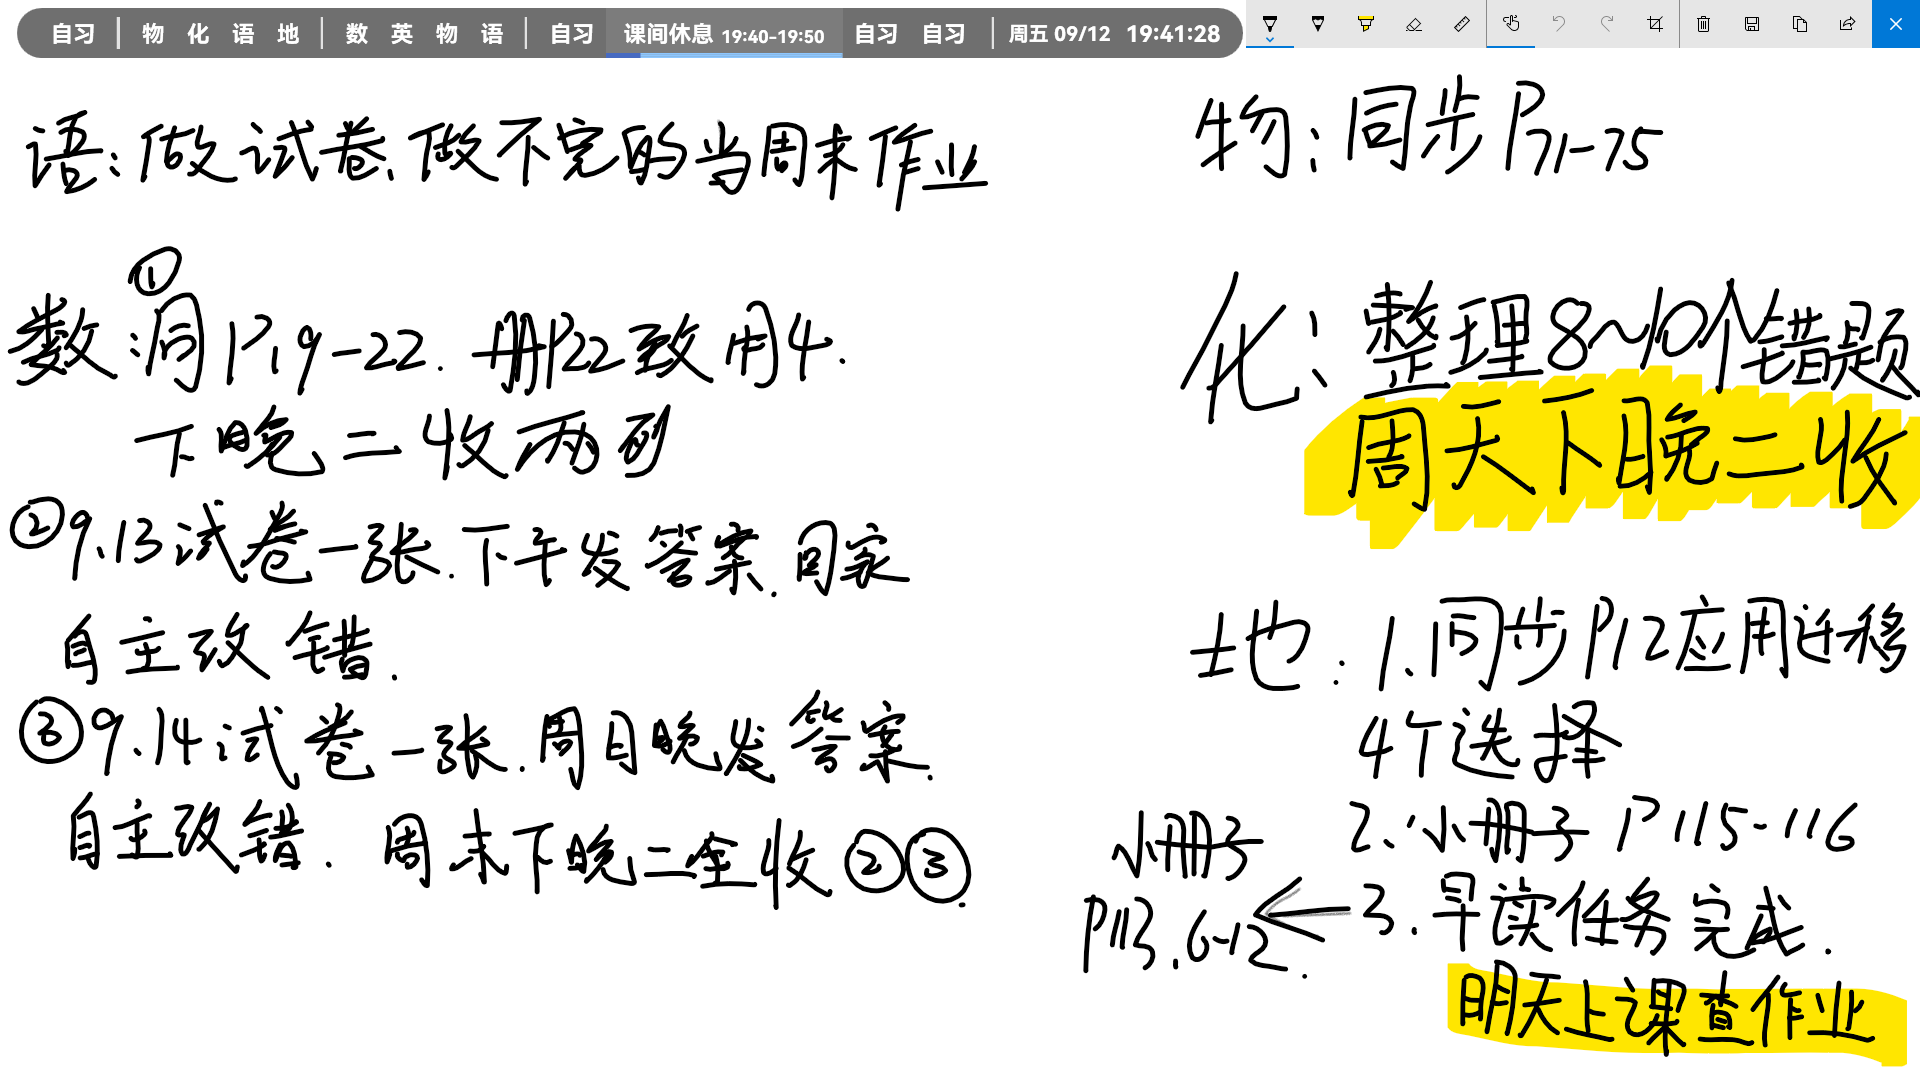 自习 | 物 化 语 地 | 数 英 物 语 | 自习 课间休息 19:40-19:50 自习 自习 | 周五 09/12 19:41:28
语:做试卷、做不完的当周末作业
数:①同P19-22. 册P22致用4.
下晚二收两列
②9.13试卷一张.下午发答案.回家
自主改错.
③9.14试卷一张.周日晚发答案.
自主改错. 周末下晚二全收②③.
物:同步P71-75
化:整理8~10个错题
周天下晚二收
地:1.同步P12应用迁移
4个选择
2.小册子P115-116
3.早读任务完成.
小册子
P113.6-12.
明天上课查作业